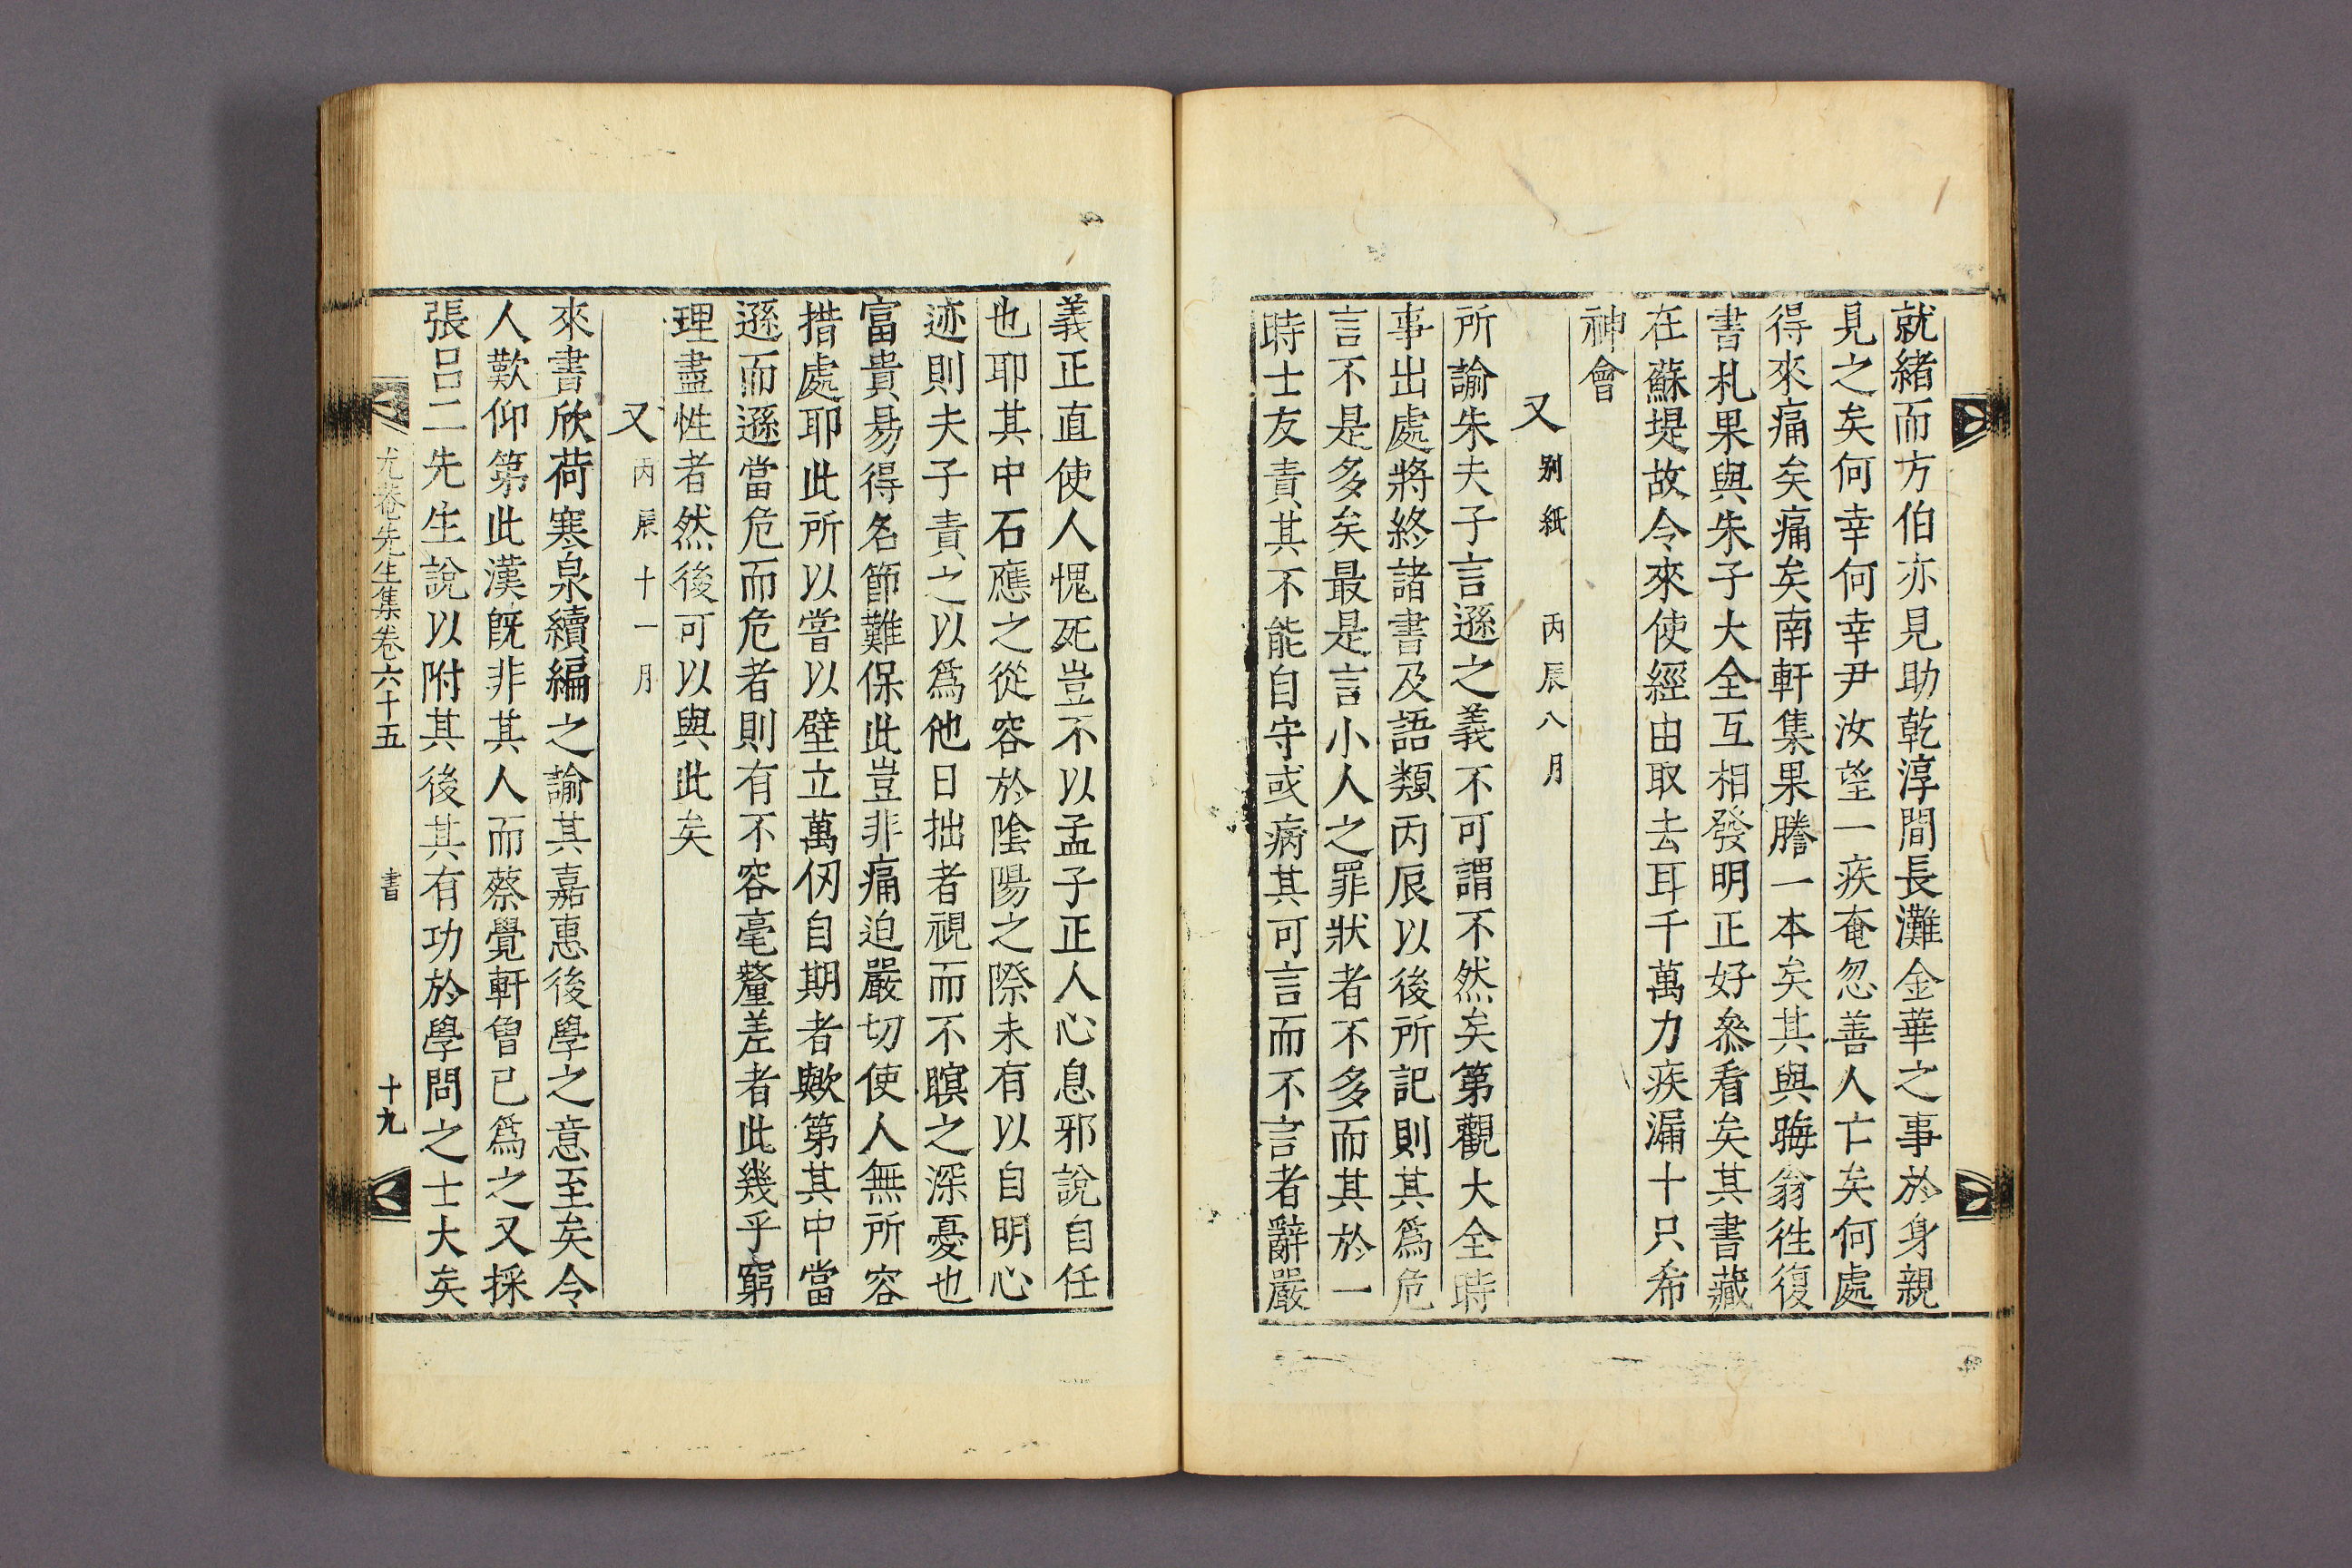 就緖而方伯亦見助乾淳間長灘金華之事於身親
見之矣何幸何幸尹汝望一疾奄忽善人亡矣何處
得來痛矣痛矣南軒集果謄一本矣其與晦翁徃復
書札果與朱子大全互相發明正好叅看矣其書藏
在蘇堤故令來使經由取去耳千萬力疾漏十只希
神會
又别紙 丙辰八月
所諭朱夫子言遜之義不可謂不然矣第觀大全時
事出處將終諸書及語類丙辰以後所記則其爲危
言不是多矣最是言小人之罪狀者不多而其於一
時士友責其不能自守或病其可言而不言者辭嚴
義正直使人愧死豈不以孟子正人心息邪說自任
也耶其中石應之從容於陰陽之際未有以自明心
迹則夫子責之以爲他日拙者視而不瞑之深憂也
富貴易得名節難保此豈非痛迫嚴切使人無所容
措處耶此所以嘗以壁立萬仞自期者歟第其中當
遜而遜當危而危者則有不容毫釐差者此幾乎窮
理盡性者然後可以與此矣
又丙辰十一月
來書欣荷寒泉續編之諭其嘉惠後學之意至矣令
人歎仰第此漢旣非其人而蔡覺軒曾已爲之又採
張呂二先生說以附其後其有功於學問之士大矣
尤菴先生集卷六十五 書 十九